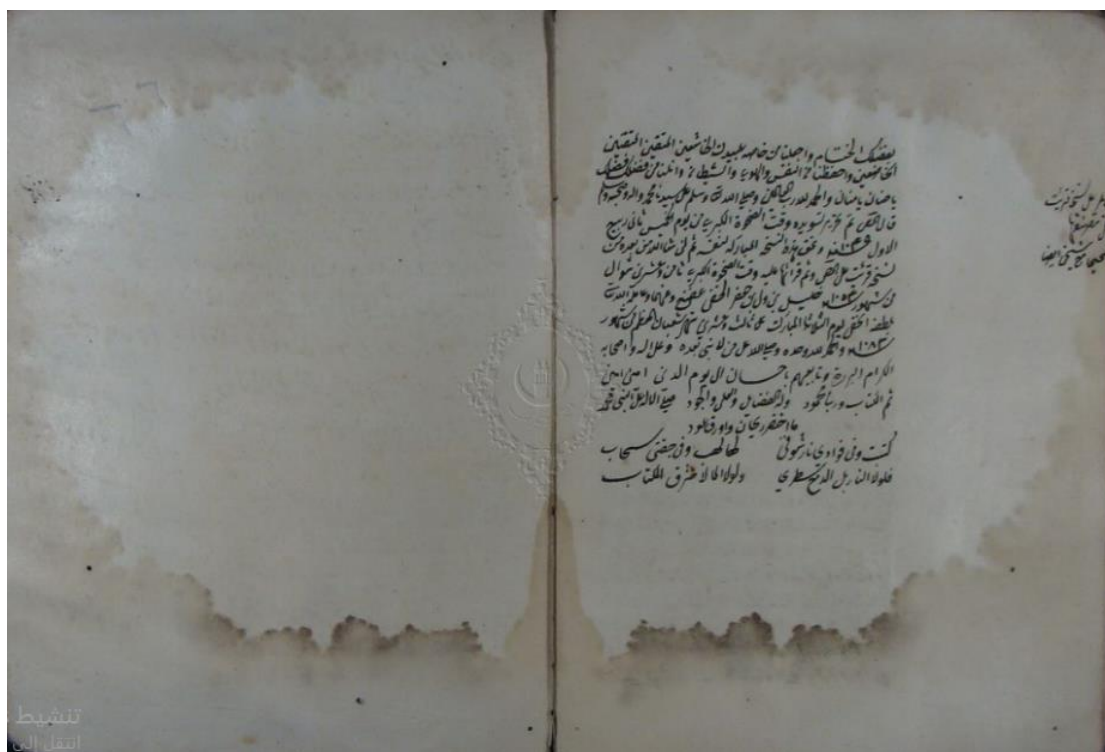 بفضلك الختام واجعلنا من خاصة عبيدك الخاشعين المتقين المتقنين
الخاضعين واحفظنا من النفس والهوى والشيطان وانلنا من فضلك افضلك
يا حنان يا منان والحمد لله رب العالمين وصلى الله وسلم على سيدنا محمد واله وصحبه وسلم
قال تم تسويده وقت الضحوة الكبرى من يوم الخميس ثاني ربيع
الاول هذه النسخة المباركة لنفسه ثم لمن شاء الله من بعده من
نسخة قرئت على وتم قراتها عليه وقت الضحوة الكبرى ثامن وعشرين شوال
من شهور خليل بن ولي بن جعفر الحنفي
يوم الثلاثا المبارك ثالث وعشرين شعبان المعظم من شهور
سنة ١٠٨٣ والحمد لله وحده وصلى الله على من لا نبي بعده وعلى اله واصحابه
الكرام البررة وتابعيهم باحسان الى يوم الدين امين امين
تم الكتاب وربنا محمود وله الفضائل والعلى والجود صلى الاله على النبي محمد
ما اخضر ريحان واورق عود
كتبت وفي فوادي نار شوقي لها لهب وفي جفني سحاب
فلولا النار بل الدمع سطري ولولا الماء لاحترق الكتاب
تنشيط
انتقل إلى